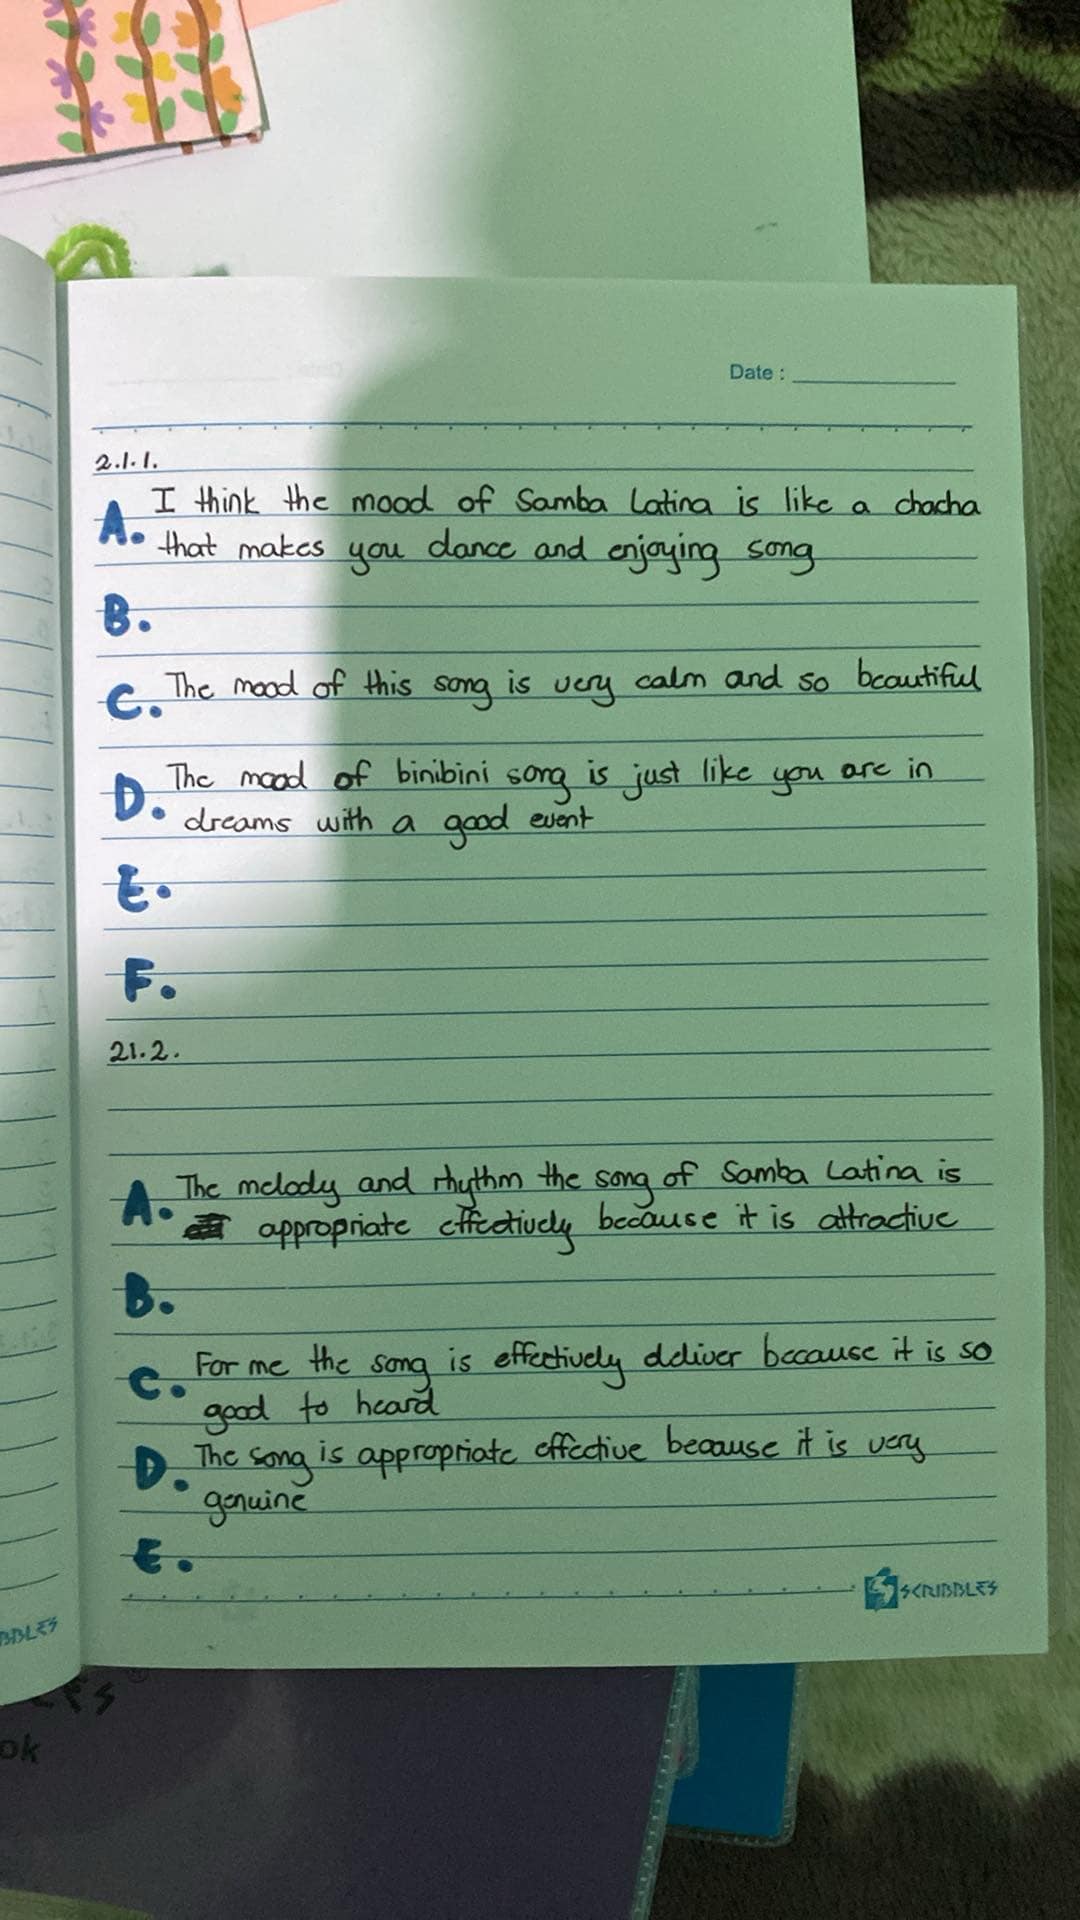 Date :
2.1.1.
A. I think the mood of Samba Latina is like a chacha
that makes you dance and enjoying song
B.
C. The mood of this song is very calm and so beautiful
D. The mood of binibini song is just like you are in
dreams with a good event
E.
F.
21.2.
A. The melody and rhythm the song of Samba Latina is
appropriate effectively because it is attractive
B.
C. For me the song is effectively deliver because it is so
good to heard
D. The song is appropriate effective because it is very
genuine
E.
SCRIBBLES
BBLES
ok